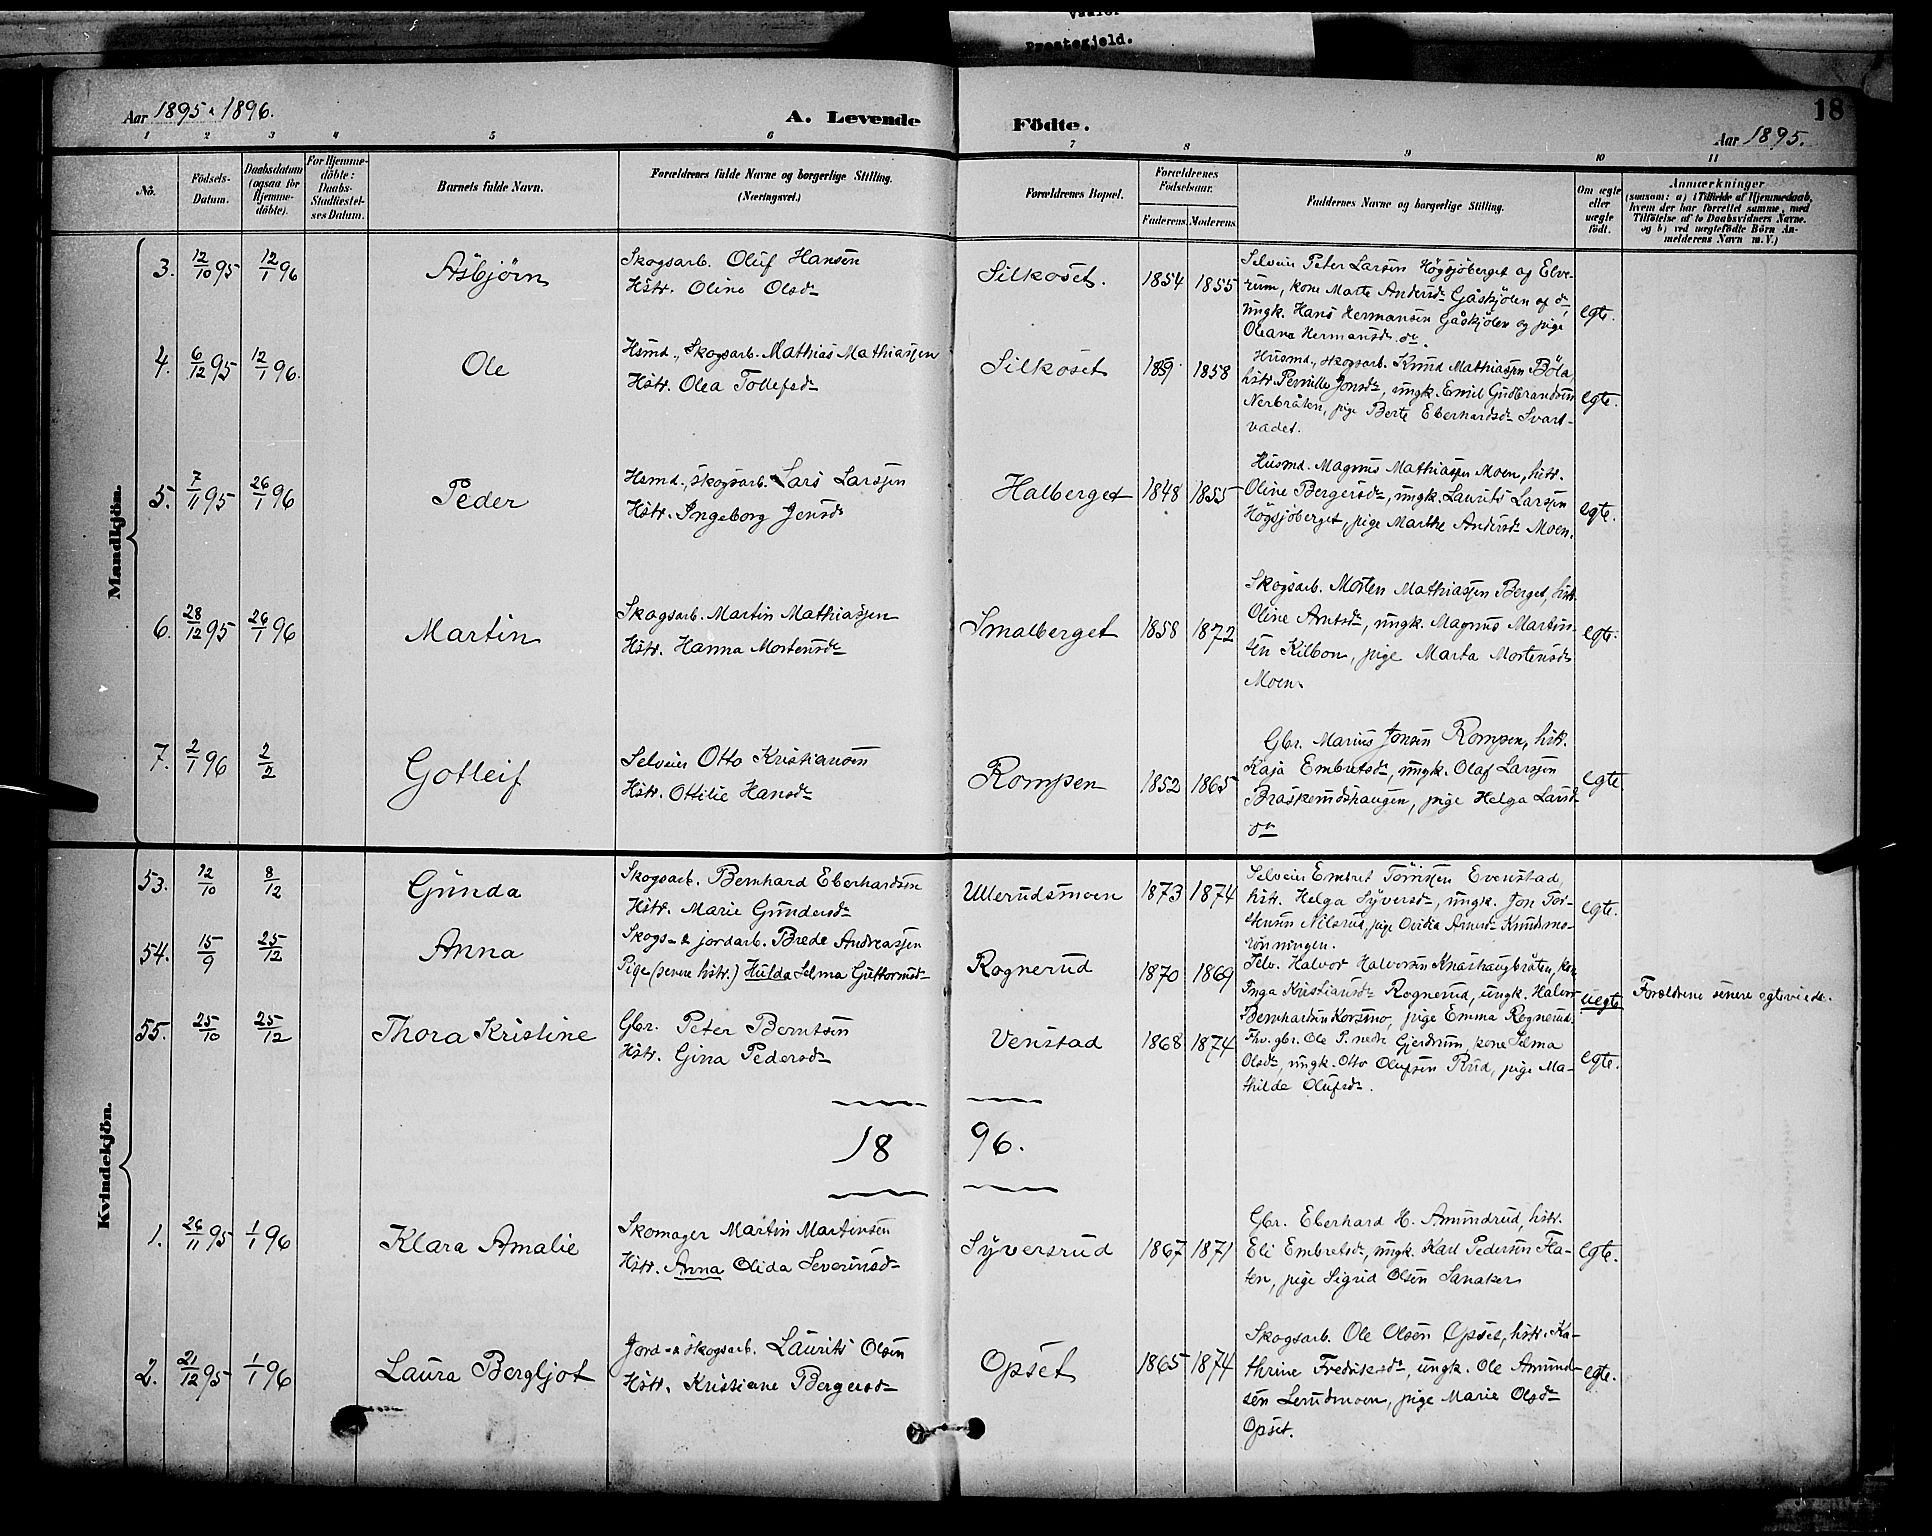 Vaaler
Prestegjeld.
Aar 1895 & 1896.
A. Levende
Födte.
18
Aar 1895.
1 2 3 4 5 6 7 8 9 10 11
No.
Födsels-Datum.
Daabsdatum (ogsaa for Hjemmedöbte).
For Hjemmedöbte: Daabs-Stadfæstelses Datum.
Barnets fulde Navn.
Forældrenes fulde Navne og borgerlige Stilling.
(Næringsvei.)
Forældrenes Bopæl.
Forældrenes Födselsaar.
Faderens. Moderens.
Faddernes Navne og borgerlige Stilling.
Om ægte eller uægte födt.
Anmærkninger
(saasom: a) i Tilfælde af Hjemmedaab,
hvem der har forrettet samme, med
Tilföielse af to Daabsvidners Navne.
og b) ved uægtefödte Börn Anmelderens Navn m.V.)
Mandkjön.
3. 12/10 95 12/1 96 Asbjörn
Skogsarb. Oluf Hansen
Hstr. Oline Olsdr
Silkoset. 1854 1855
Selveier Peter Larsen Högsjöberget af Elve-
rum, kone Marte Andersdr Gåskjölen af do,
ungk. Hans Hermansen Gåskjölen og pige
Oleana Hermansdr do.
egte.
4. 6/12 95 12/1 96. Ole
Hsmd., Skogsarb. Mathias Mathiassen
Hstr. Olea Tollefsdr
Silkoset 1859 1858
Husmd., skogsarb. Knud Mathiassen Böla,
hstr. Pernille Jonsdr, ungk. Emil Gudbrandsen
Nerbråten, pige Berte Eberhardsdr Svart-
vadet.
egte.
5. 7/11 95 26/1 96 Peder
Hsmd., skogsarb. Lars Larssen
Hstr. Ingeborg Jensdr
Halberget 1848 1855
Husmd. Magnus Mathiassen Moen, hstr.
Oline Bergersdr, ungk. Laurits Larssen
Högsjöberget, pige Marthe Andersdr Moen.
egte.
6. 28/12 95 26/1 96 Martin
Skogsarb. Martin Mathiassen
Hstr. Hanna Mortensdr
Smalberget 1858 1872
Skogsarb. Morten Mathiassen Berget, hstr.
Oline Arntsdr, ungk. Magnus Martin-
sen Kilbon, pige Marta Mortensdr
Moen.
egte.
7. 2/1 96 2/2 Gotleif
Selveier Otto Kristiansen
Hstr. Ottilie Hansdr
Rompen 1852 1865
Gbr. Marius Jonsen Rompen, hstr.
Kaja Embretsdr, ungk. Olaf Larssen
Braskerudshaugen, pige Helga Larsdr
do
egte
Kvindekjön.
53. 12/10 8/12 Gunda
Skogsarb. Bernhard Eberhardsen
Hstr. Marie Gundersdr
Ullerudsmoen 1873 1874
Selveier Embret Evenstad,
hstr. Helga Syversdr, ungk. Jon Tor-
stensen Nilsrud, pige Knudsmo-
rönningen.
egte.
54. 15/9 25/12 Anna
Skogs- & jordarb. Brede Andreassen
Pige (senere hstr.) Hulda Selma Guttormsdr
Rognerud 1870 1869
Selv. Halvor Halvorsen Knashaugbråten, kone
Inga Kristiansdr Rognerud, ungk. Halvor
Bernhardsen Korsmo, pige Emma Rognerud.
uegte
Forældrene senere egteviede.
55. 25/10 25/12 Thora Kristine
Gbr. Peter Berntsen
Hstr. Gina Pedersdr
Venstad 1868 1874
Fhv. gbr. Ole P. nedre Gjerdrum, kone Selma
Olsdr, ungk. Otto Olufsen Rud, pige Ma-
thilde Olufsdr.
egte.
18 96.
1. 26/11 95 1/1 96 Klara Amalie
Skomager Martin Martinsen
Hstr. Anna Olida Severinsdr
Syversrud 1867 1871
Gbr. Eberhard H. Amundrud, hstr.
Eli Embretsdr, ungk. Karl Pedersen Fla-
ten, pige Sigrid Olsen Sanaker
egte.
2. 21/12 95 1/1 96 Laura Bergljot
Jord- & skogsarb. Laurits Olsen
Hstr. Kristiane Bergersdr
Opset 1865 1874
Skogsarb. Ole Olsen Opset, hstr. Ka-
thrine Fredriksdr, ungk. Ole Amund-
sen Lerudmoen, pige Marie Olsdr
Opset.
egte.